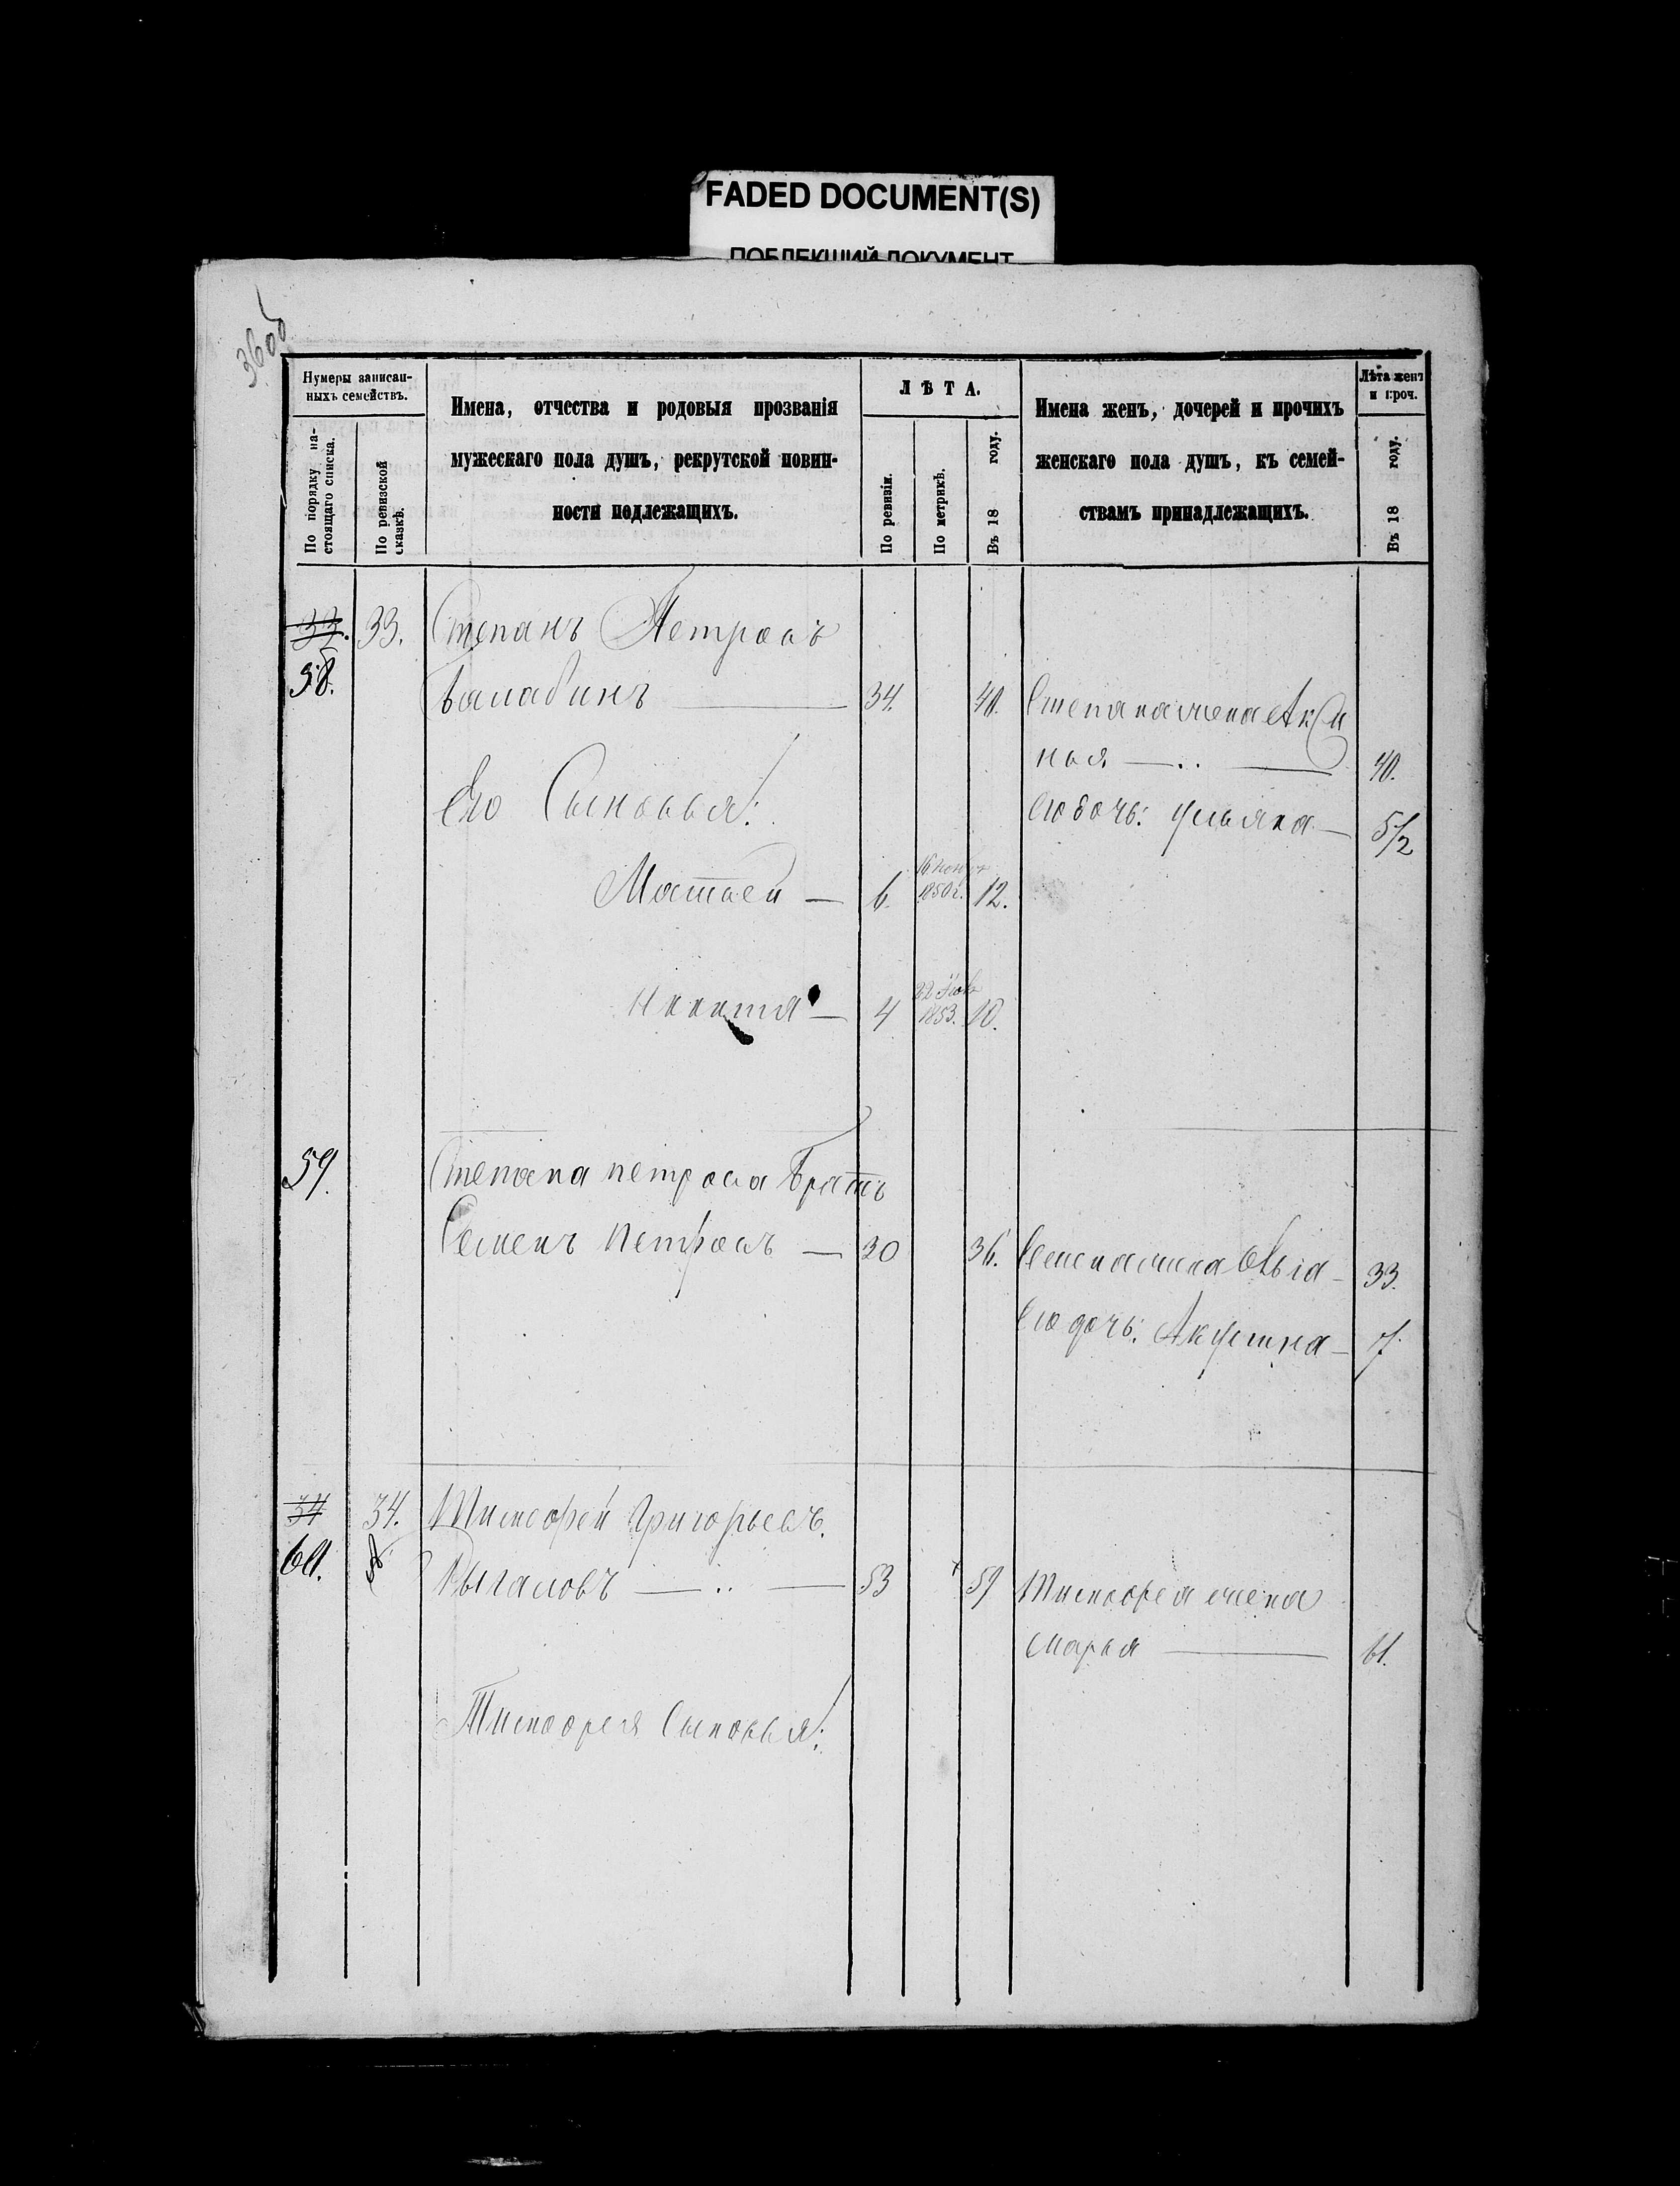 FADED DOCUMENT(S)
ПОБЛЕКШИЙ ДОКУМЕНТ
36 об
Нумеры записан-
ныхъ семействъ.
По порядку на-
стоящаго списка.
По ревизской
сказкѣ.
Имена, отчества и родовыя прозванія
мужескаго пола душъ, рекрутской повин-
ности подлежащихъ.
ЛѢТА.
По ревизіи.
По метрикѣ.
Въ 18 году.
Имена женъ, дочерей и прочихъ
женскаго пола душъ, къ семей-
ствамъ принадлежащихъ.
Лѣта женъ
и проч.
Въ 18 году.
33. 33. Степанъ Петровъ
58.
Балабинъ 34. 40. Степана жена Акси
нья 40.
Его Сыновья:
Ею дочь: Ульяна 5/2
Матвей 6. 16 1850 г. 12.
Никита 4 22 1853. 10.
59. Степана Петрова Братъ
Семенъ Петровъ 30 36. Семена жена 33.
Ею дочь: Акулина 7.
34 34. Тимофей Григорьевъ
60.
Рыгаловъ 53 59 Тимофея жена
Марья 61.
Тимофея Сыновья: